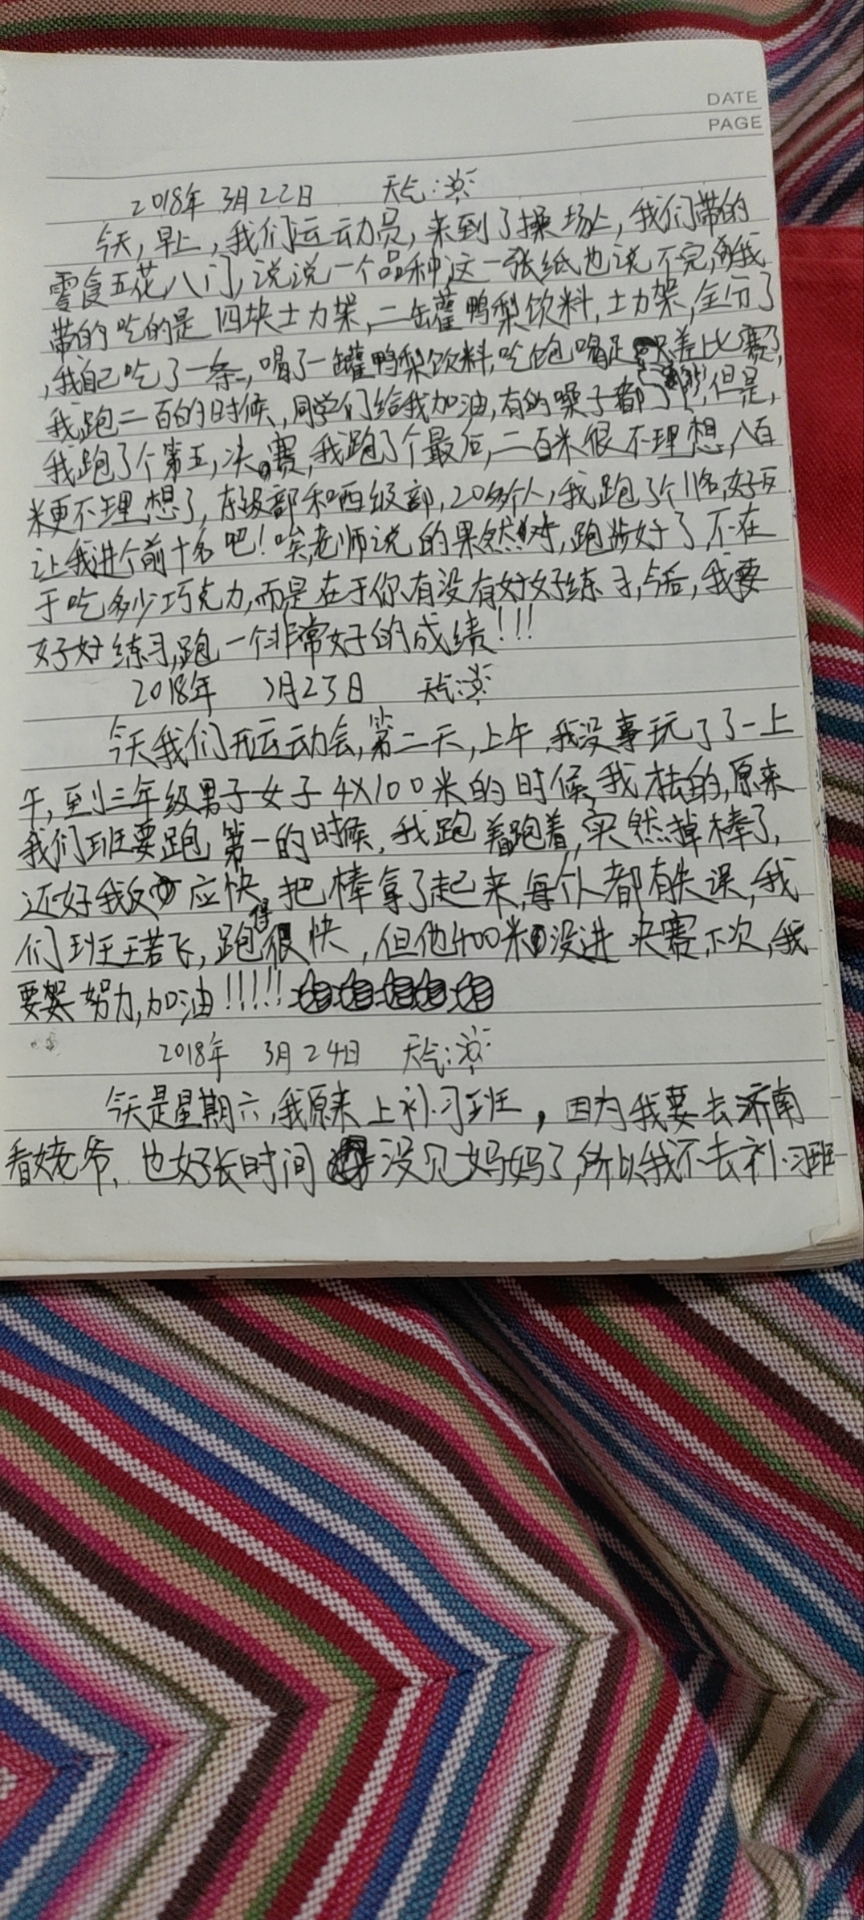 DATE
PAGE
2018年 3月22日 天气:
今天,早上,我们运动员,来到了操场上,我们带的
零食五花八门,说说一个品种,这一张纸也说不完,我
带的吃的是四块士力架,二罐鸭梨饮料,士力架,全分了
,我自己吃了一条,喝了一罐鸭梨饮料,吃饱喝足 差比赛了,
我跑二百的时候,同学们给我加油,有的嗓子都 了,但是,
我跑了个第五,决赛,我跑了个最后,二百米很不理想,八百
米更不理想了,东级部和西级部,20多个人,我跑了个11名,好歹
让我进个前十名吧!唉,老师说的果然对,跑步好了,不在
于吃多少巧克力,而是在于你有没有好好练习,今后,我要
好好练习,跑一个非常好的成绩!!!
2018年 3月23日 天气:
今天我们开运动会,第二天,上午,我没事玩了了一上
午,到三年级男子女子4X100米的时候,我 的,原来
我们班要跑第一的时候,我跑着跑着,突然掉棒了,
还好我反应快,把棒拿了起来,每个人都有失误,我
们班王若飞,跑得很快,但他400米没进决赛,下次,我
要努力,加油!!!!!
2018年 3月24日 天气:
今天是星期六,我原来上补习班,因为我要去济南
看姥爷,也好长时间没见妈妈了,所以我不去补习班